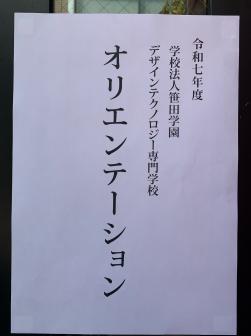 令和七年度
学校法人笹田学園
デザインテクノロジー専門学校
オリエンテーション